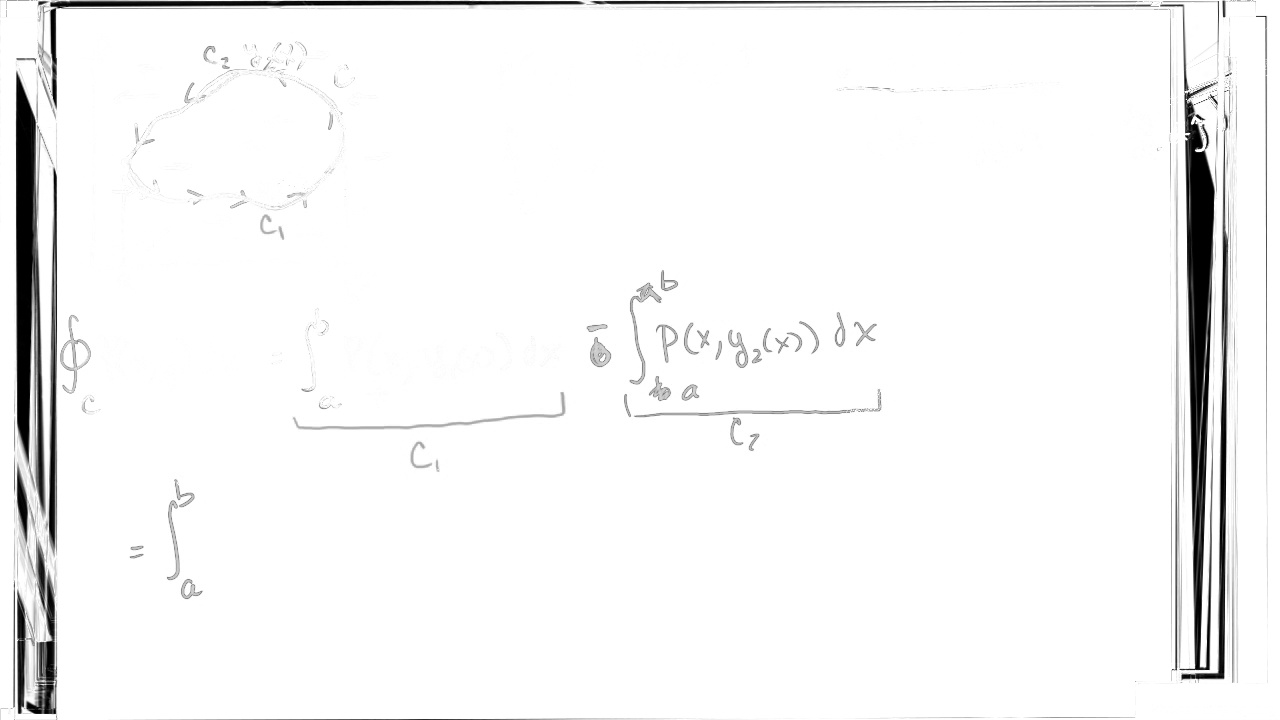 C₂ y₂(x) C
C₁
∮_C = ∫_a^b dx - ∫_a^b P(x, y₂(x)) dx
C₁ C₂
= ∫_a^b